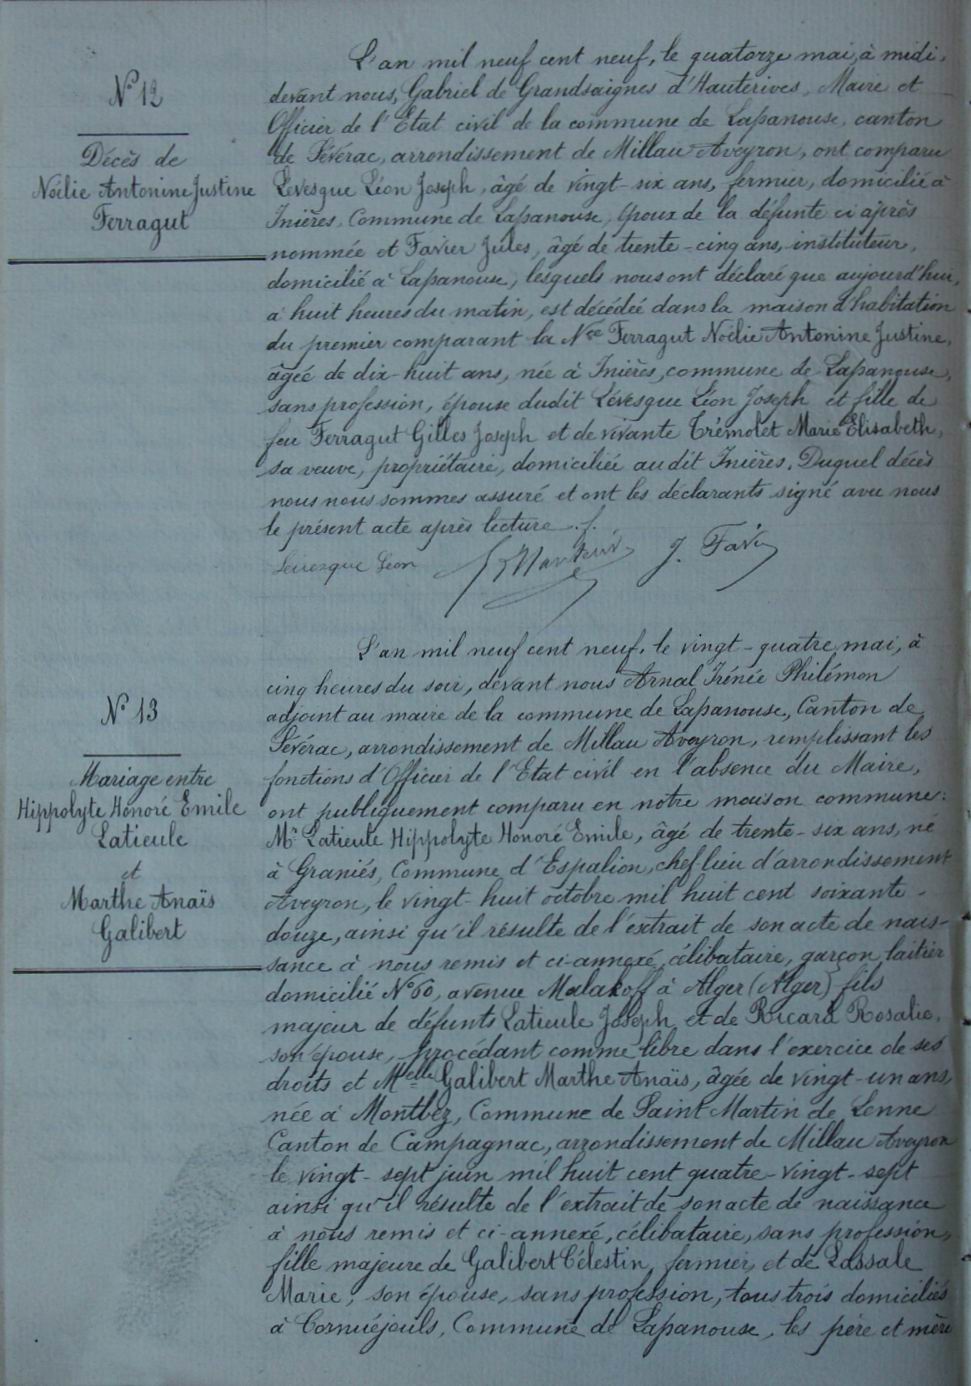 N° 12
Décès de
Noélie Antonine Justine
Ferragut
L'an mil neuf cent neuf, le quatorze mai, à midi,
devant nous, Gabriel de Grandsaignes d'Hauterives, Maire et
Officier de l'Etat civil de la commune de Lapanouse, canton
de Sévérac, arrondissement de Millau Aveyron, ont comparu
Levesque Léon Joseph, âgé de vingt-six ans, fermier, domicilié à
Inières, Commune de Lapanouse, époux de la défunte ci après
nommée et Favier Jules, âgé de trente-cinq ans, instituteur,
domicilié à Lapanouse, lesquels nous ont déclaré que aujourd'hui,
à huit heures du matin, est décédée dans la maison d'habitation
du premier comparant la Née Ferragut Noélie Antonine Justine,
âgée de dix-huit ans, née à Inières, commune de Lapanouse,
sans profession, épouse dudit Lévesque Léon Joseph et fille de
feu Ferragut Gilles Joseph et de vivante Trémolet Marie Elisabeth,
sa veuve, propriétaire, domiciliée au dit Inières. Duquel décès
nous nous sommes assuré et ont les déclarants signé avec nous
le présent acte après lecture.
Levesque Léon J. Favier
N° 13
Mariage entre
Hippolyte Honoré Emile
Latieule
et
Marthe Anaïs
Galibert
L'an mil neuf cent neuf, le vingt-quatre mai, à
cinq heures du soir, devant nous Arnal Irénée Philémon
adjoint au maire de la commune de Lapanouse, Canton de
Sévérac, arrondissement de Millau Aveyron, remplissant les
fonctions d'Officier de l'Etat civil en l'absence du Maire,
ont publiquement comparu en notre maison commune:
Mr Latieule Hippolyte Honoré Emile, âgé de trente-six ans, né
à Graniés, Commune d'Espalion, chef lieu d'arrondissement
Aveyron, le vingt-huit octobre mil huit cent soixante-
douze, ainsi qu'il résulte de l'extrait de son acte de nais-
sance à nous remis et ci-annexé, célibataire, garçon laitier
domicilié N° 60, avenue Malakoff à Alger (Alger) fils
majeur de défunts Latieule Joseph et de Ricard Rosalie,
son épouse, procédant comme libre dans l'exercice de ses
droits et Melle Galibert Marthe Anaïs, âgée de vingt-un ans,
née à Montbez, Commune de Saint Martin de Lenne
Canton de Campagnac, arrondissement de Millau Aveyron
le vingt-sept juin mil huit cent quatre-vingt-sept
ainsi qu'il résulte de l'extrait de son acte de naissance
à nous remis et ci-annexé, célibataire, sans profession,
fille majeure de Galibert Célestin, fermier, et de Lassale
Marie, son épouse, sans profession, tous trois domiciliés
à Cornuéjouls, Commune de Lapanouse, les père et mère